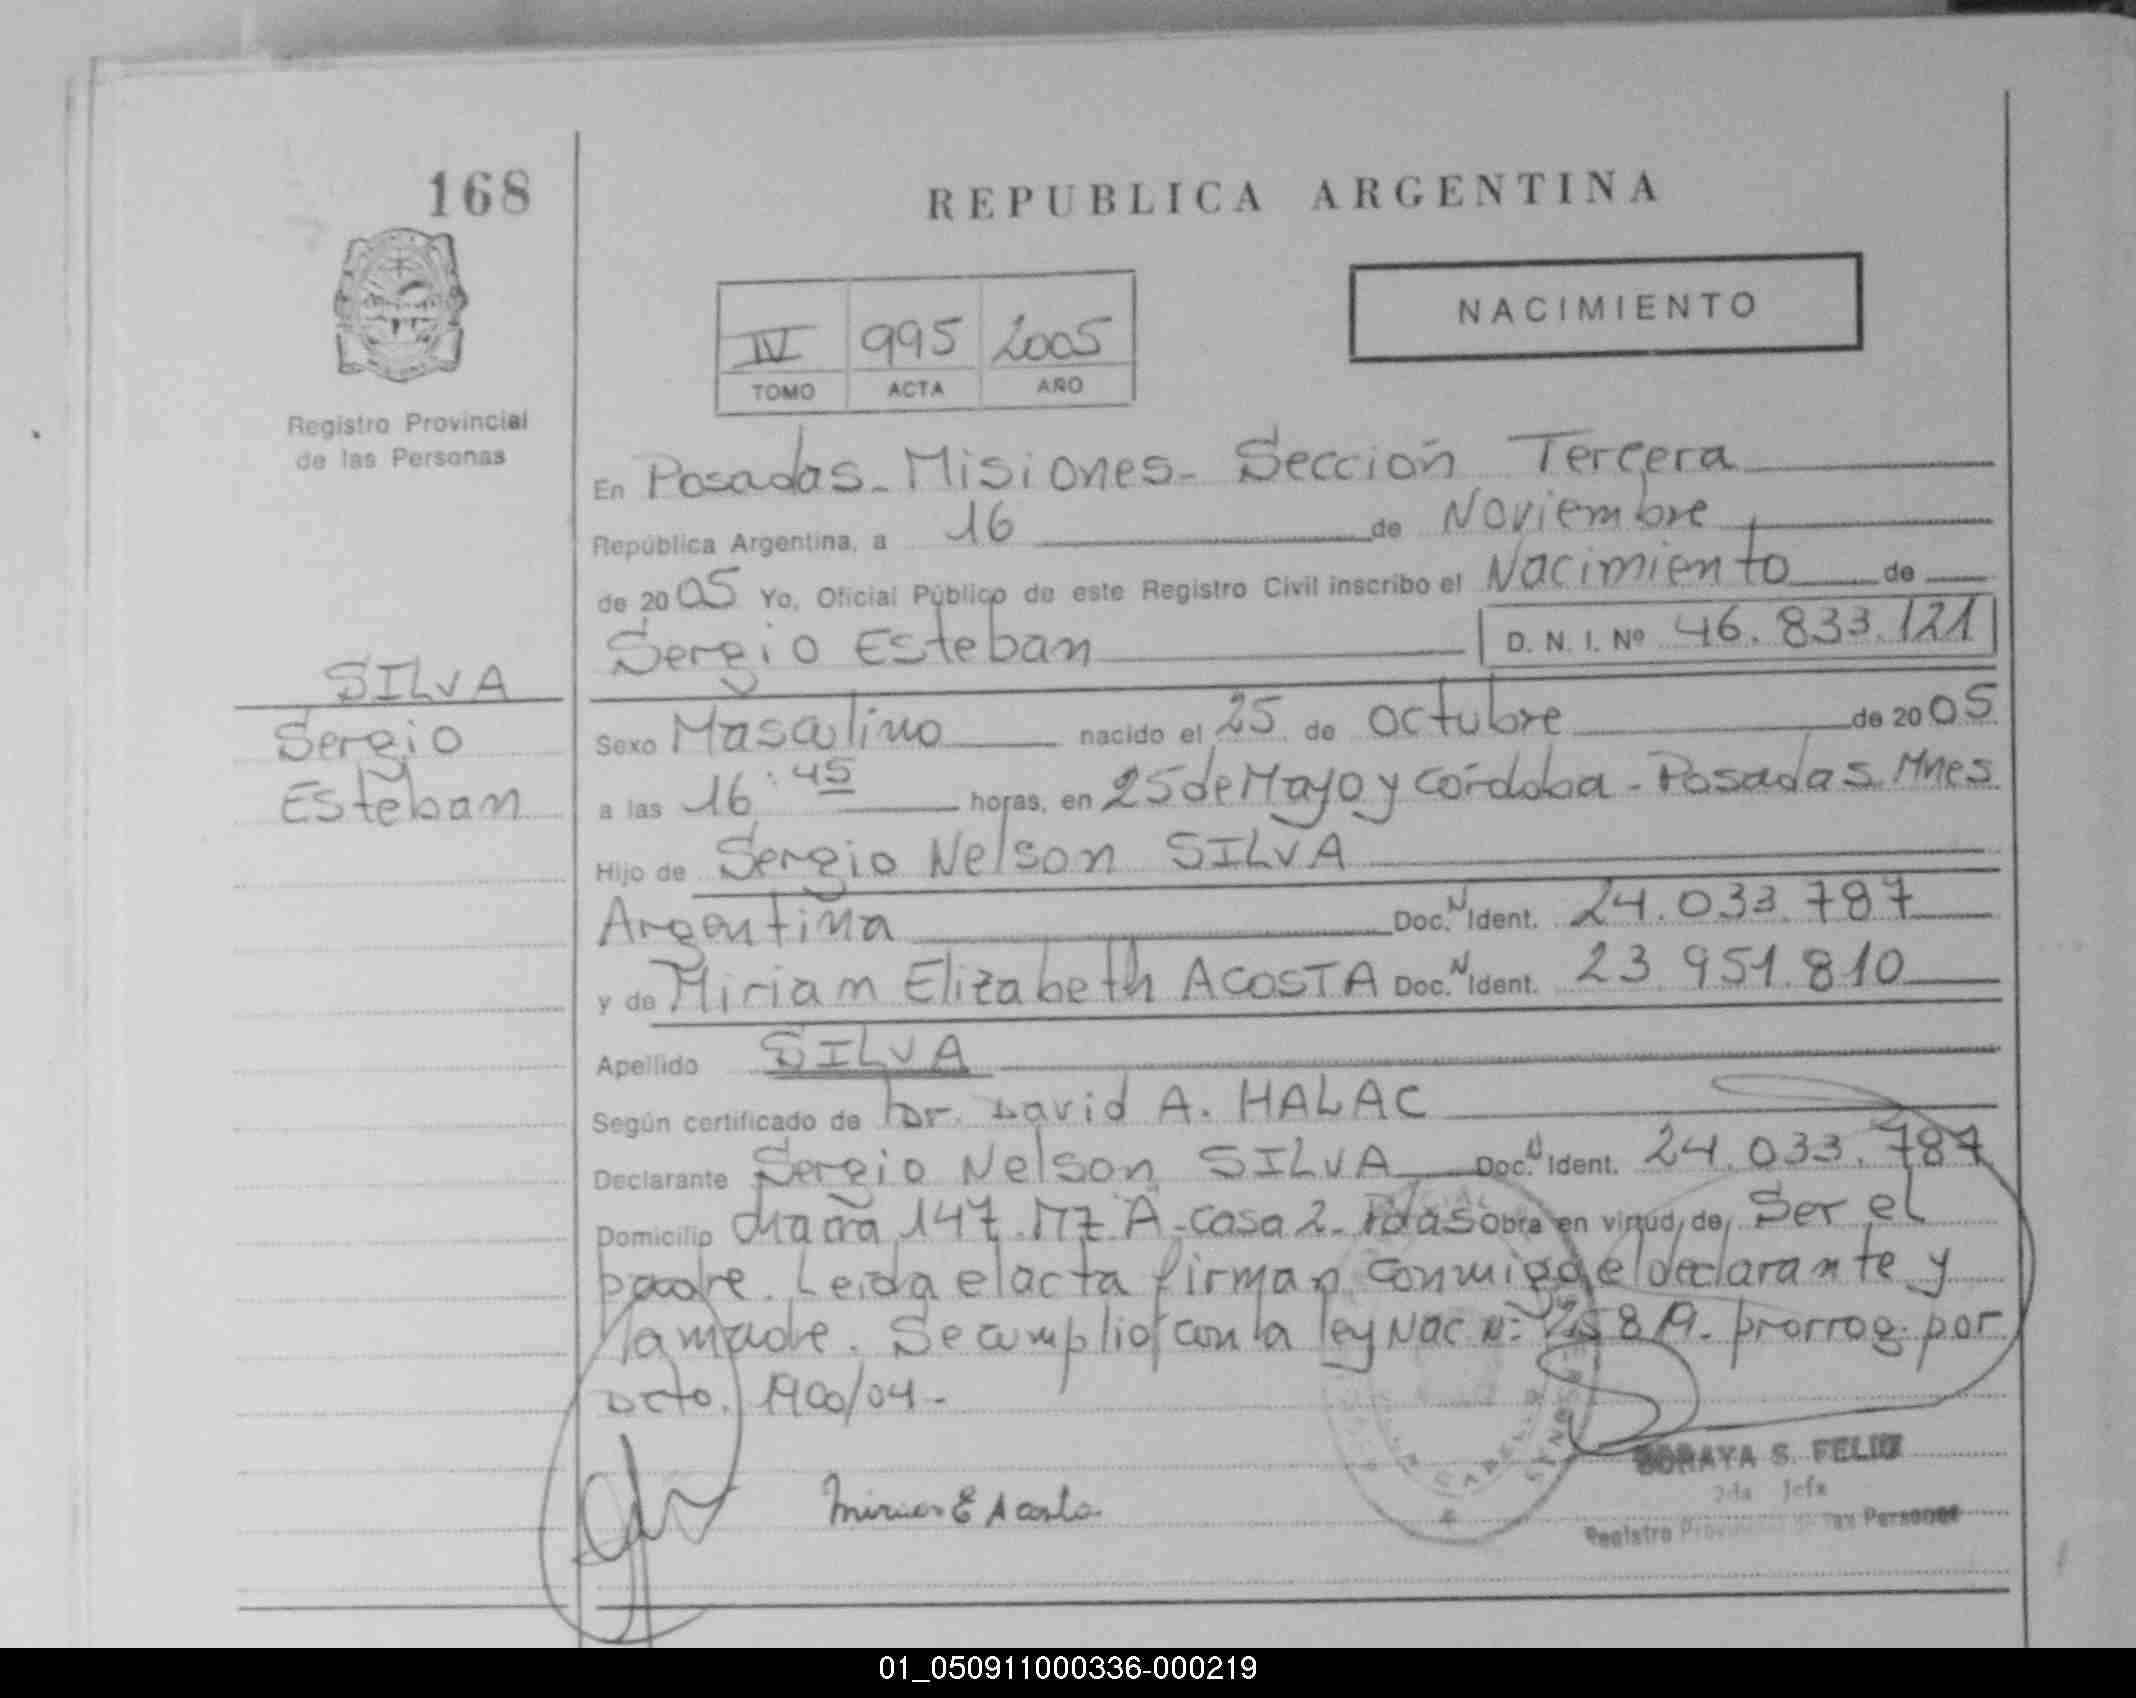 168
REPUBLICA ARGENTINA
NACIMIENTO
IV 995 2005
TOMO ACTA AÑO
Registro Provincial
de las Personas
En Posadas - Misiones - Sección Tercera
República Argentina, a 16 de Noviembre
de 2005 Yo, Oficial Público de este Registro Civil inscribo el Nacimiento de
Sergio Esteban D. N. I. Nº 46.833.121
SILVA
Sergio
Esteban
Sexo Masculino nacido el 25 de Octubre de 2005
a las 16:45 horas, en 25 de Mayo y Córdoba - Posadas Mnes.
Hijo de Sergio Nelson SILVA
Argentina Doc. N Ident. 24.033.787
y de Miriam Elizabeth ACOSTA Doc. N Ident. 23.951.810
Apellido SILVA
Según certificado de Dr. David A. HALAC
Declarante Sergio Nelson SILVA Doc. N Ident. 24.033.787
Domicilio chacra 147. Mz A - casa 2 - Pdas Obra en virtud de Ser el
padre. Leída el acta firman conmigo el declarante y
la madre. Se cumplió con la ley Nac Nº 25819. prorrog. por
Dcto. 1900/04 -
Miriam E Acosta
SORAYA S. FELIU
2da Jefa
Registro Provincial de las Personas
01_050911000336-000219